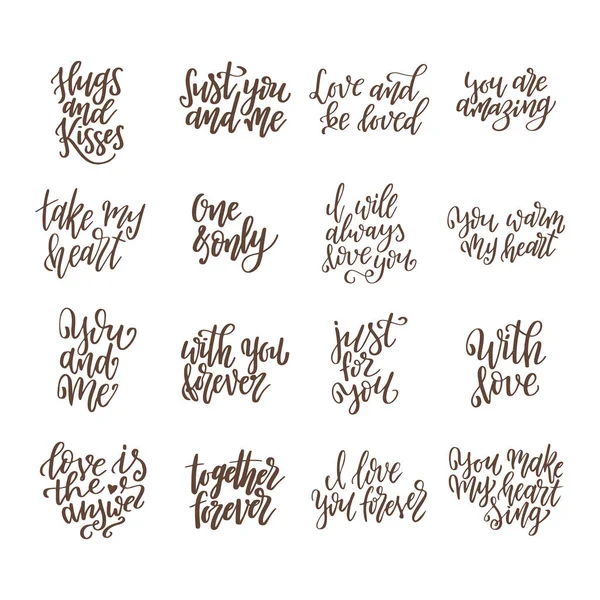 Hugs
and
Kisses
Just you
and me
Love and
be loved
you are
amazing
take my
heart
One
&only
I will
always
love you
You warm
my heart
You
and
me
with you
forever
just
for
you
With
love
love is
the
answer
together
forever
I love
you forever
You make
my heart
sing